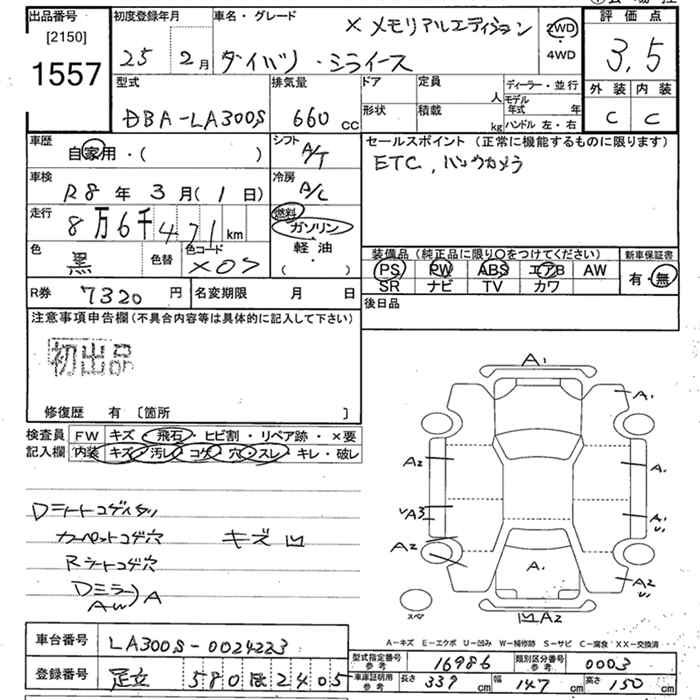 出品番号
[2150]
1557
初度登録年月
25 2月
車名・グレード
X メモリアルエディション
ダイハツ・ミライース
2WD
4WD
評価点
3.5
外装 内装
C C
型式
DBA-LA300S
排気量
660 cc
ドア
形状
定員 人
積載 kg
ディーラー・並行
モデル年式 年
ハンドル 左・右
車歴
自家用・( )
シフト
A/T
セールスポイント(正常に機能するものに限ります)
ETC, バックカメラ
車検
R8年3月(1日)
冷房
A/C
走行
8万6千471km
燃料
ガソリン
軽油
( ・ )
色
黒
色替
色コード
X07
装備品(純正品に限り○をつけてください)
PS PW ABS エアB AW
SR ナビ TV カワ
新車保証書
有・無
R券 7320円
名変期限 月 日
後日品
注意事項申告欄(不具合内容等は具体的に記入して下さい)
初出品
修復歴 有 [箇所 ]
検査員記入欄
FW キズ・飛石・ヒビ割・リペア跡・×要
内装 キズ・汚レ・コゲ・穴・スレ・キレ・破レ
Dシートコゲ
カーペットコゲ穴 キズ凹
Rシートコゲ穴
Dミラー
AW A
A1
A1
A2
A1
A3
A1
U1
A2
A1
A2
U1
スペア
凹A2
A-キズ E-エクボ U-凹み W-補修跡 S-サビ C-腐食 XX-交換済
車台番号
LA300S-0024223
登録番号
足立 580 ほ 2405
型式指定番号 参考 16986
類別区分番号 参考 0003
車庫証明用 参考
長さ 339cm 幅 147cm 高さ 150cm